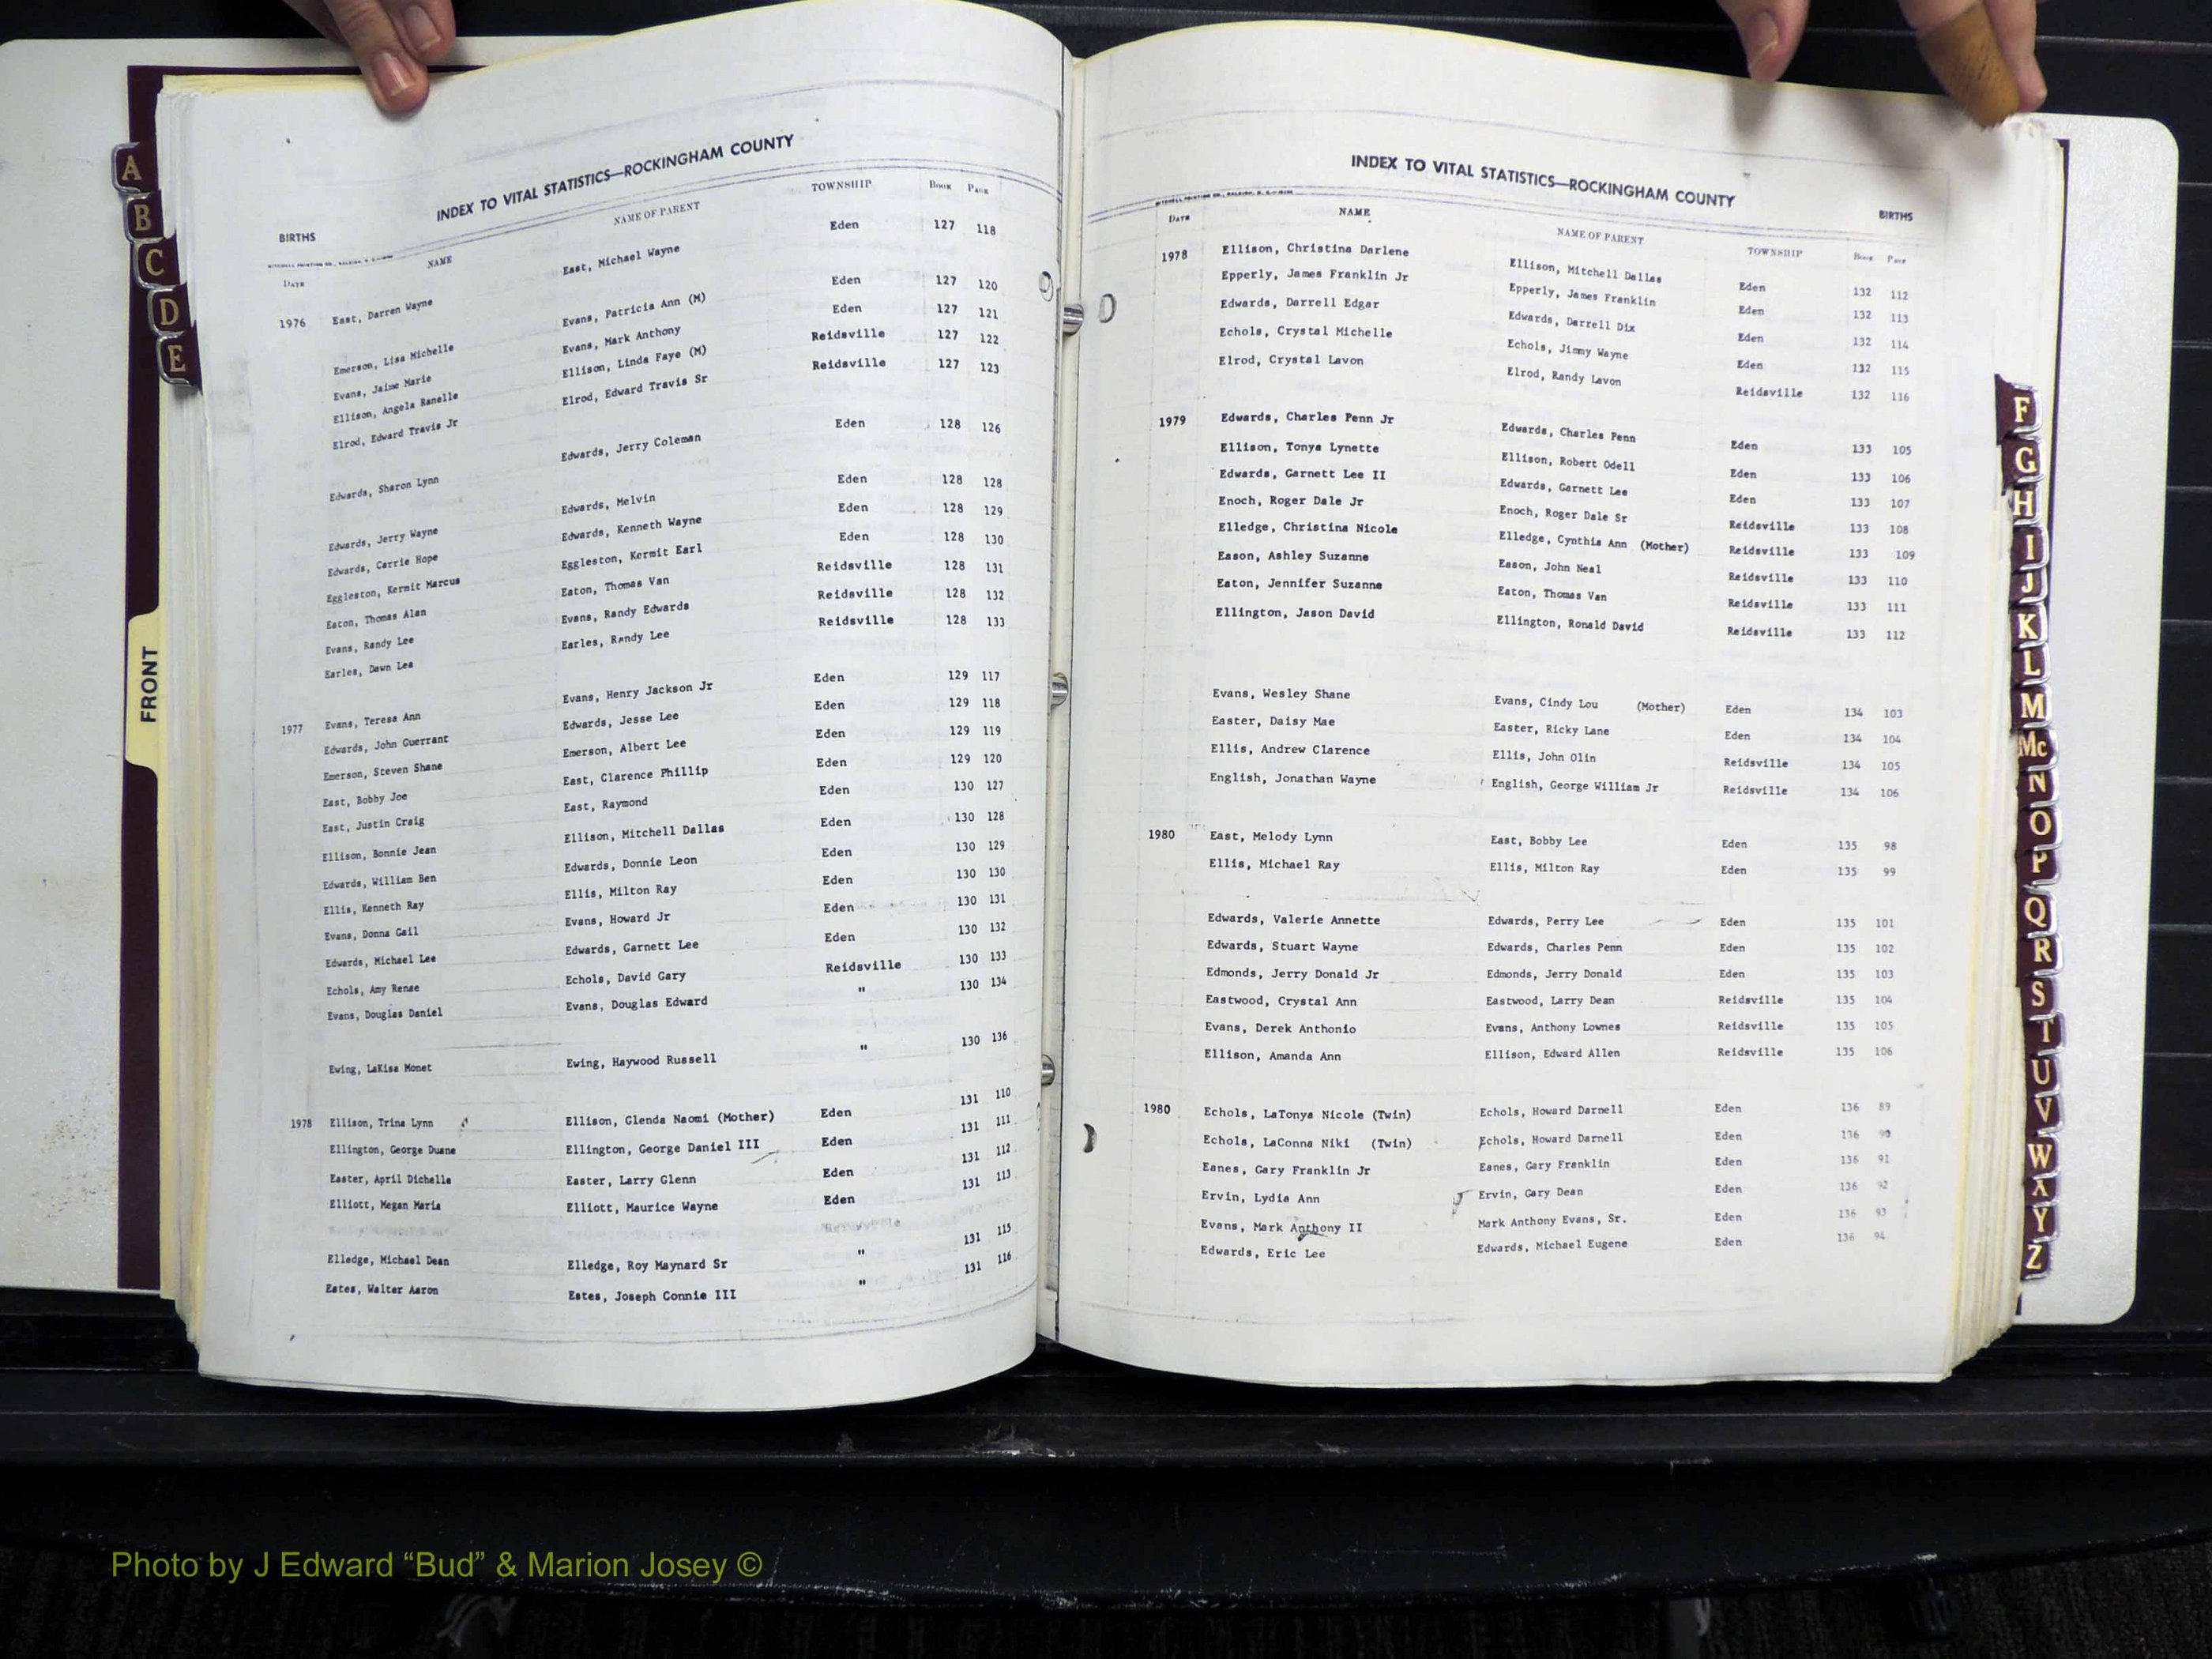 INDEX TO VITAL STATISTICS—ROCKINGHAM COUNTY
BIRTHS
DATE NAME NAME OF PARENT TOWNSHIP BOOK PAGE
1976 East, Darren Wayne East, Michael Wayne Eden 127 118
Emerson, Lisa Michelle Evans, Patricia Ann (M) Eden 127 120
Evans, Jaime Marie Evans, Mark Anthony Eden 127 121
Ellison, Angela Ranelle Ellison, Linda Faye (M) Reidsville 127 122
Elrod, Edward Travis Jr Elrod, Edward Travis Sr Reidsville 127 123
Edwards, Sharon Lynn Edwards, Jerry Coleman Eden 128 126
Edwards, Jerry Wayne Edwards, Melvin Eden 128 128
Edwards, Carrie Hope Edwards, Kenneth Wayne Eden 128 129
Eggleston, Kermit Marcus Eggleston, Kermit Earl Eden 128 130
Eaton, Thomas Alan Eaton, Thomas Van Reidsville 128 131
Evans, Randy Lee Evans, Randy Edwards Reidsville 128 132
Earles, Dawn Lea Earles, Randy Lee Reidsville 128 133
1977 Evans, Teresa Ann Evans, Henry Jackson Jr Eden 129 117
Edwards, John Guerrant Edwards, Jesse Lee Eden 129 118
Emerson, Steven Shane Emerson, Albert Lee Eden 129 119
East, Bobby Joe East, Clarence Phillip Eden 129 120
East, Justin Craig East, Raymond Eden 130 127
Ellison, Bonnie Jean Ellison, Mitchell Dallas Eden 130 128
Edwards, William Ben Edwards, Donnie Leon Eden 130 129
Ellis, Kenneth Ray Ellis, Milton Ray Eden 130 130
Evans, Donna Gail Evans, Howard Jr Eden 130 131
Edwards, Michael Lee Edwards, Garnett Lee Eden 130 132
Echols, Amy Renae Echols, David Gary Reidsville 130 133
Evans, Douglas Daniel Evans, Douglas Edward " 130 134
Ewing, LaKisa Monet Ewing, Haywood Russell " 130 136
1978 Ellison, Trina Lynn Ellison, Glenda Naomi (Mother) Eden 131 110
Ellington, George Duane Ellington, George Daniel III Eden 131 111
Easter, April Dichelle Easter, Larry Glenn Eden 131 112
Elliott, Megan Maria Elliott, Maurice Wayne Eden 131 113
Elledge, Michael Dean Elledge, Roy Maynard Sr " 131 115
Estes, Walter Aaron Estes, Joseph Connie III " 131 116
INDEX TO VITAL STATISTICS—ROCKINGHAM COUNTY
BIRTHS
DATE NAME NAME OF PARENT TOWNSHIP BOOK PAGE
1978 Ellison, Christina Darlene Ellison, Mitchell Dallas Eden 132 112
Epperly, James Franklin Jr Epperly, James Franklin Eden 132 113
Edwards, Darrell Edgar Edwards, Darrell Dix Eden 132 114
Echols, Crystal Michelle Echols, Jimmy Wayne Eden 132 115
Elrod, Crystal Lavon Elrod, Randy Lavon Reidsville 132 116
1979 Edwards, Charles Penn Jr Edwards, Charles Penn Eden 133 105
Ellison, Tonya Lynette Ellison, Robert Odell Eden 133 106
Edwards, Garnett Lee II Edwards, Garnett Lee Eden 133 107
Enoch, Roger Dale Jr Enoch, Roger Dale Sr Reidsville 133 108
Elledge, Christina Nicole Elledge, Cynthia Ann (Mother) Reidsville 133 109
Eason, Ashley Suzanne Eason, John Neal Reidsville 133 110
Eaton, Jennifer Suzanne Eaton, Thomas Van Reidsville 133 111
Ellington, Jason David Ellington, Ronald David Reidsville 133 112
Evans, Wesley Shane Evans, Cindy Lou (Mother) Eden 134 103
Easter, Daisy Mae Easter, Ricky Lane Eden 134 104
Ellis, Andrew Clarence Ellis, John Olin Reidsville 134 105
English, Jonathan Wayne English, George William Jr Reidsville 134 106
1980 East, Melody Lynn East, Bobby Lee Eden 135 98
Ellis, Michael Ray Ellis, Milton Ray Eden 135 99
Edwards, Valerie Annette Edwards, Perry Lee Eden 135 101
Edwards, Stuart Wayne Edwards, Charles Penn Eden 135 102
Edmonds, Jerry Donald Jr Edmonds, Jerry Donald Eden 135 103
Eastwood, Crystal Ann Eastwood, Larry Dean Reidsville 135 104
Evans, Derek Anthonio Evans, Anthony Lownes Reidsville 135 105
Ellison, Amanda Ann Ellison, Edward Allen Reidsville 135 106
1980 Echols, LaTonya Nicole (Twin) Echols, Howard Darnell Eden 136 89
Echols, LaConna Niki (Twin) Echols, Howard Darnell Eden 136 90
Eanes, Gary Franklin Jr Eanes, Gary Franklin Eden 136 91
Ervin, Lydia Ann Ervin, Gary Dean Eden 136 92
Evans, Mark Anthony II Mark Anthony Evans, Sr. Eden 136 93
Edwards, Eric Lee Edwards, Michael Eugene Eden 136 94
A
B
C
D
E
FRONT
F
G
H
I
J
K
L
M
Mc
N
O
P
Q
R
S
T
U
V
W
X
Y
Z
Photo by J Edward “Bud” & Marion Josey ©